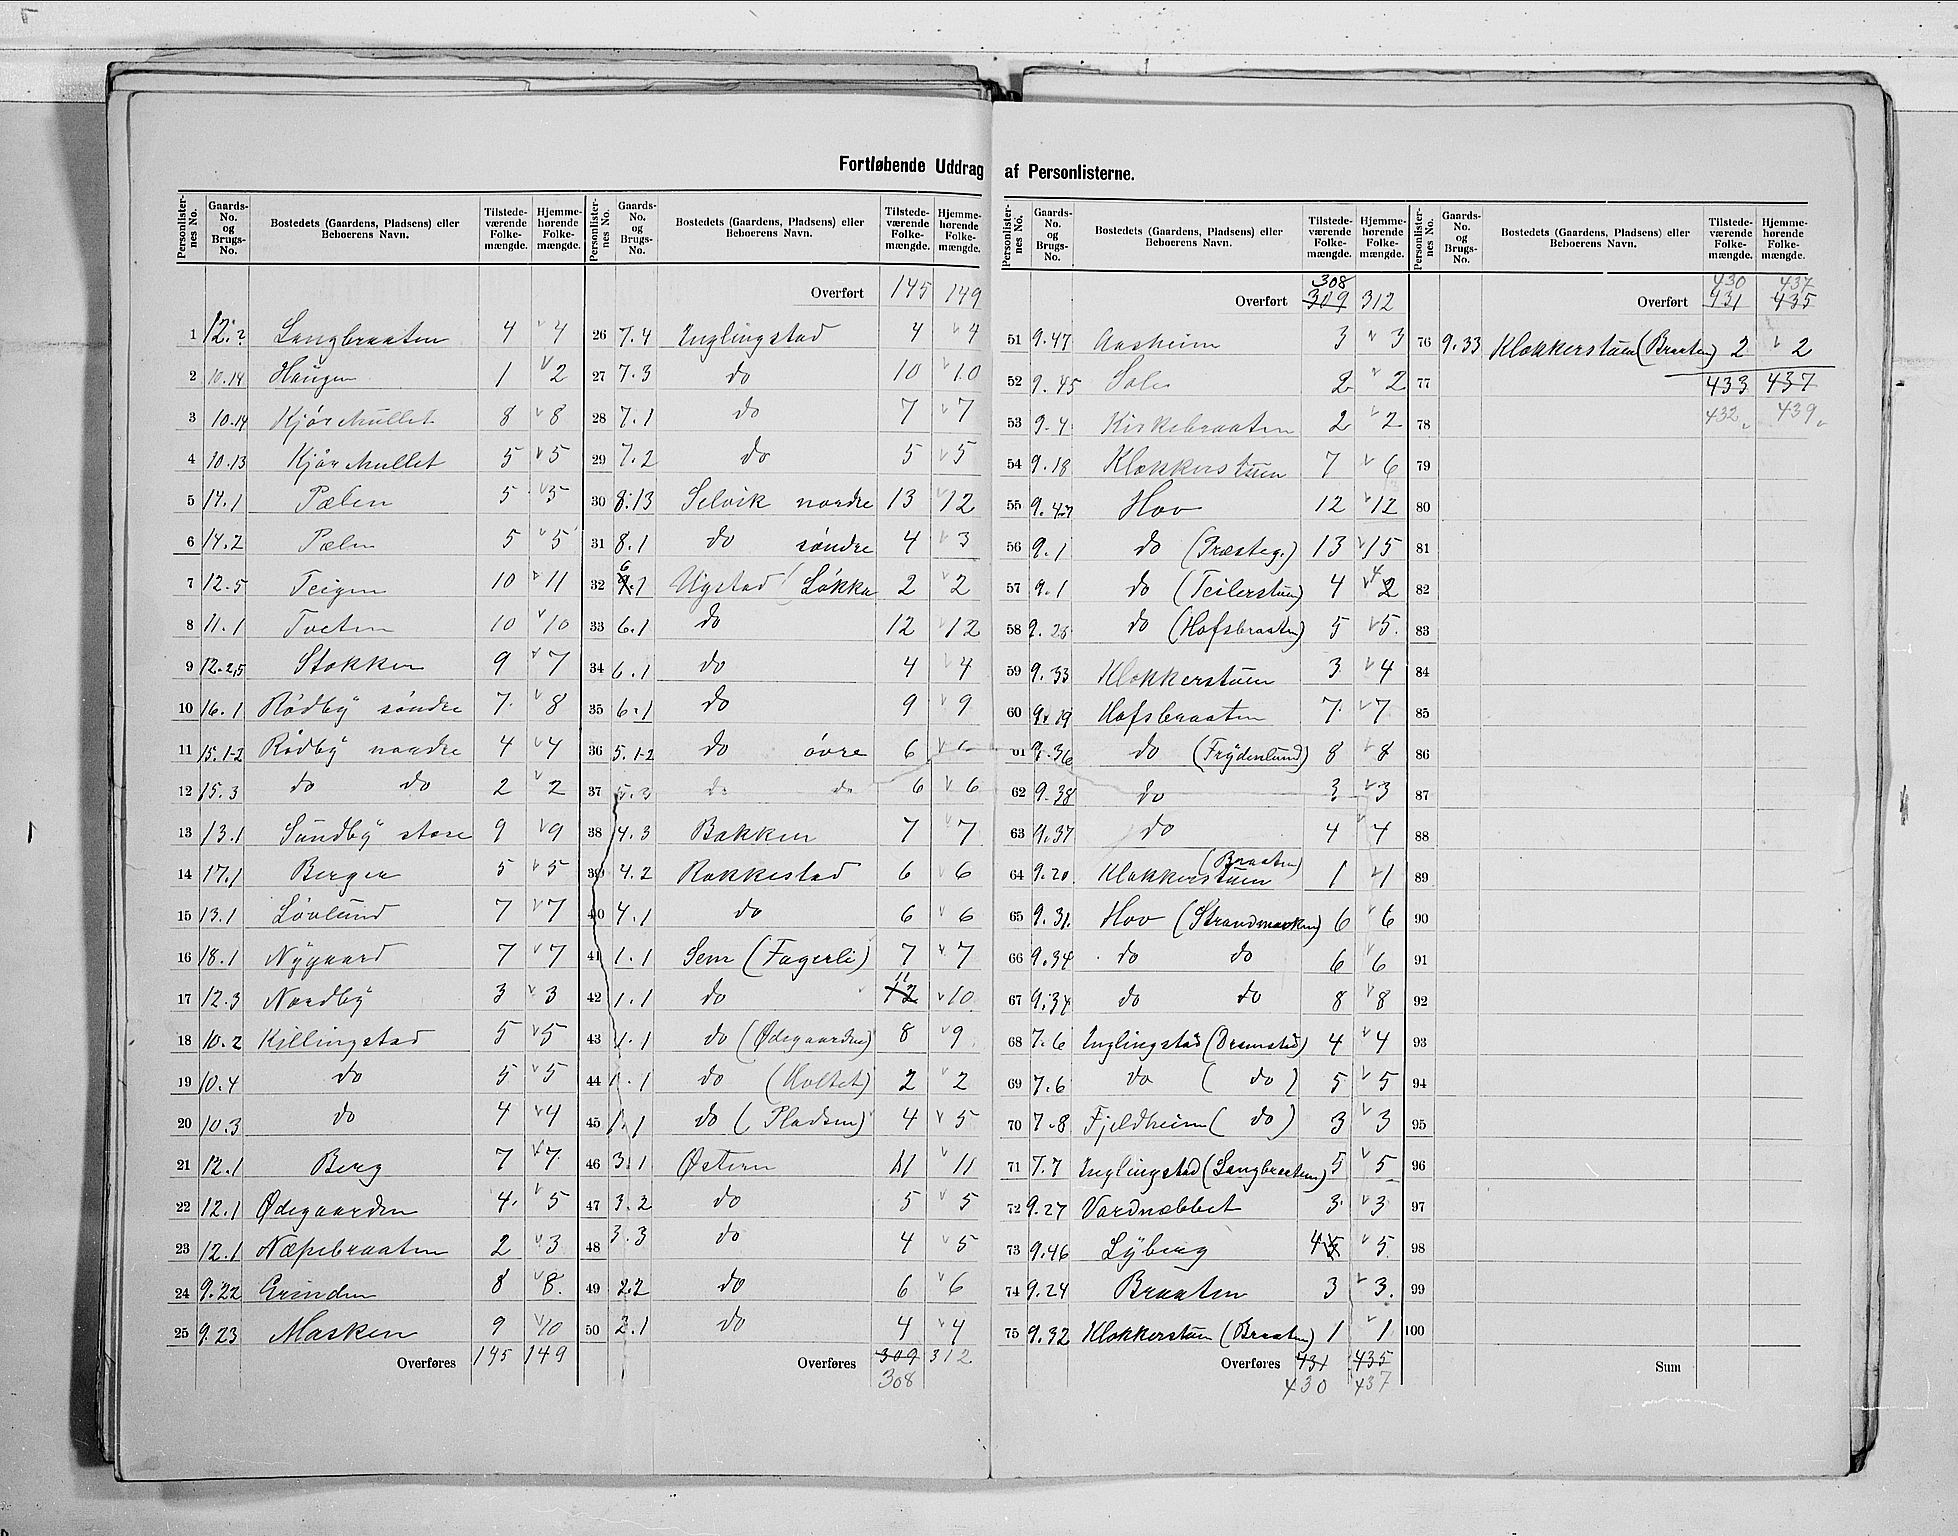 Fortløbende Uddrag af Personlisterne.
Personlister-nes No. Gaards-No. og Brugs-No. Bostedets (Gaardens, Pladsens) eller Beboerens Navn. Tilstede-værende Folke-mængde. Hjemme-hørende Folke-mængde.
1 12.2 Langbraaten 4 4
2 10.14 Haugen 1 2
3 10.14 Kjørehullet 8 8
4 10.13 Kjørehullet 5 5
5 14.1 Pælen 5 5
6 14.2 Pælen 5 5
7 12.5 Teigen 10 11
8 11.1 Tveten 10 10
9 12.2,5 Stokken 9 7
10 16.1 Rødby søndre 7 8
11 15.1-2 Rødby nordre 4 4
12 15.3 do do 2 2
13 13.1 Sundby store 9 9
14 17.1 Berger 5 5
15 13.1 Løvlund 7 7
16 18.1 Nygaard 7 7
17 12.3 Nordby 3 3
18 10.2 Killingstad 5 5
19 10.4 do 5 5
20 10.3 do 4 4
21 12.1 Berg 7 7
22 12.1 Ødegaarden 4 5
23 12.1 Næpebraaten 2 3
24 9.22 Grinden 8 8
25 9.23 Masken 9 10
Overføres 145 149
Personlister-nes No. Gaards-No. og Brugs-No. Bostedets (Gaardens, Pladsens) eller Beboerens Navn. Tilstede-værende Folke-mængde. Hjemme-hørende Folke-mængde.
Overført 145 149
26 7.4 Inglingstad 4 4
27 7.3 do 10 10
28 7.1 do 7 7
29 7.2 do 5 5
30 8.13 Selvik nordre 13 12
31 8.1 do søndre 4 3
32 6.1 Ugstad (Løkka 2 2
33 6.1 do 12 12
34 6.1 do 4 4
35 6.1 do 9 9
36 5.1-2 do øvre 6 6
37 5.3 do do 6 6
38 4.3 Bakken 7 7
39 4.2 Rakkestad 6 6
40 4.1 do 6 6
41 1.1 Sem (Fagerli) 7 7
42 1.1 do 12 11 10
43 1.1 do (Ødegaarden) 8 9
44 1.1 do (Holtet) 2 2
45 1.1 do (Pladsen) 4 5
46 3.1 Østern 11 11
47 3.2 do 5 5
48 3.3 do 4 5
49 2.2 do 6 6
50 2.1 do 4 4
Overføres 309 312
308
Personlister-nes No. Gaards-No. og Brugs-No. Bostedets (Gaardens, Pladsens) eller Beboerens Navn. Tilstede-værende Folke-mængde. Hjemme-hørende Folke-mængde.
308
Overført 309 312
51 9.47 Aasheim 3 3
52 9.45 Solli 2 2
53 9.4 Kirkebraaten 2 2
54 9.18 Klokkerstuen 7 6
55 9.47 Hov 12 12
56 9.1 do (Præsteg.) 13 15
57 9.1 do (Teilerstuen) 4 4 2
58 9.28 do (Hofsbraaten) 5 5
59 9.33 Klokkerstuen 3 4
60 9.19 Hofsbraaten 7 7
61 9.36 do (Frydenlund) 8 8
62 9.38 do 3 3
63 9.37 do 4 4
64 9.20 Klokkerstuen (Braaten) 1 1
65 9.31 Hov (Strandmarken) 6 6
66 9.34 do do 6 6
67 9.34 do do 8 8
68 7.6 Inglingstad (Dramstad) 4 4
69 7.6 do (do) 5 5
70 7.8 Fjeldheim (do) 3 3
71 7.7 Inglingstad (Langbraaten) 5 5
72 9.27 Vardnæbbet 3 3
73 9.46 Lyberg 4 5 5
74 9.24 Braaten 3 3
75 9.32 Klokkerstuen (Braaten) 1 1
Overføres 431 435
430 437
Personlister-nes No. Gaards-No. og Brugs-No. Bostedets (Gaardens, Pladsens) eller Beboerens Navn. Tilstede-værende Folke-mængde. Hjemme-hørende Folke-mængde.
430 437
Overført 431 435
76 9.33 Klokkerstuen (Braaten) 2 2
77 433 437
78 432 439
79
80
81
82
83
84
85
86
87
88
89
90
91
92
93
94
95
96
97
98
99
100
Sum